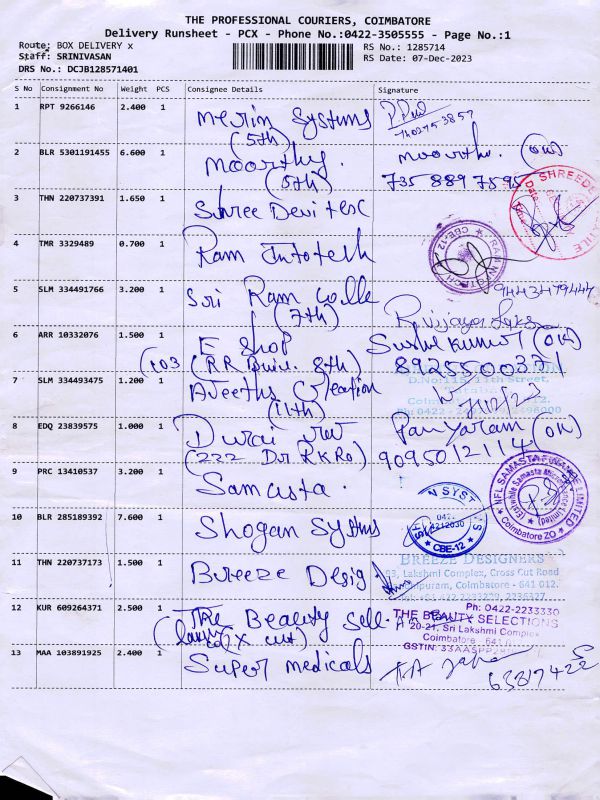 THE PROFESSIONAL COURIERS, COIMBATORE
Delivery Runsheet - PCX - Phone No.:0422-3505555 - Page No.:1
Route: BOX DELIVERY x
RS No.: 1285714
Staff: SRINIVASAN
RS Date: 07-Dec-2023
DRS No.: DCJB128571401
S No Consignment No Weight PCS Consignee Details Signature
1 RPT 9266146 2.400 1 Merim Systems
(5th)
2 BLR 5301191455 6.600 1 Moorthy. Moorthi. (OW)
(5th)
3 THN 220737391 1.650 1 Shree Devi tesc
SHREEDE
Date
4 TMR 3329489 0.700 1 Ram Infotech
CBE-12
5 SLM 334491766 3.200 1 Sri Ram Colle 9443479444
(7th)
6 ARR 10332076 1.500 1 E Shop
(103 (RR Buil. 8th) 8925500371
7 SLM 334493475 1.200 1 Aveeths Creation
(11th) 7/12/23
8 EDQ 23839575 1.000 1 Durai (OW)
(222 Dr RKRo) 9095012114
9 PRC 13410537 3.200 1 Samasta.
NFL SAMASTA FINANCE LIMITED
(Erstwhile Samasta Microfinance Limited)
Coimbatore ZO
10 BLR 285189392 7.600 1 Shogan Systms
N SYST
CBE-12
11 THN 220737173 1.500 1 Breeze Desig
BREEZE DESIGNERS
03, Lakshmi Complex, Cross Cut Road
puram, Coimbatore - 641 012.
12 KUR 609264371 2.500 1 The Beauty Sele
Ph: 0422-2233330
THE BEAUTY SELECTIONS
20-21, Sri Lakshmi Complex
Coimbatore - 641
GSTIN: 33AASP
13 MAA 103891925 2.400 1 Super medicals